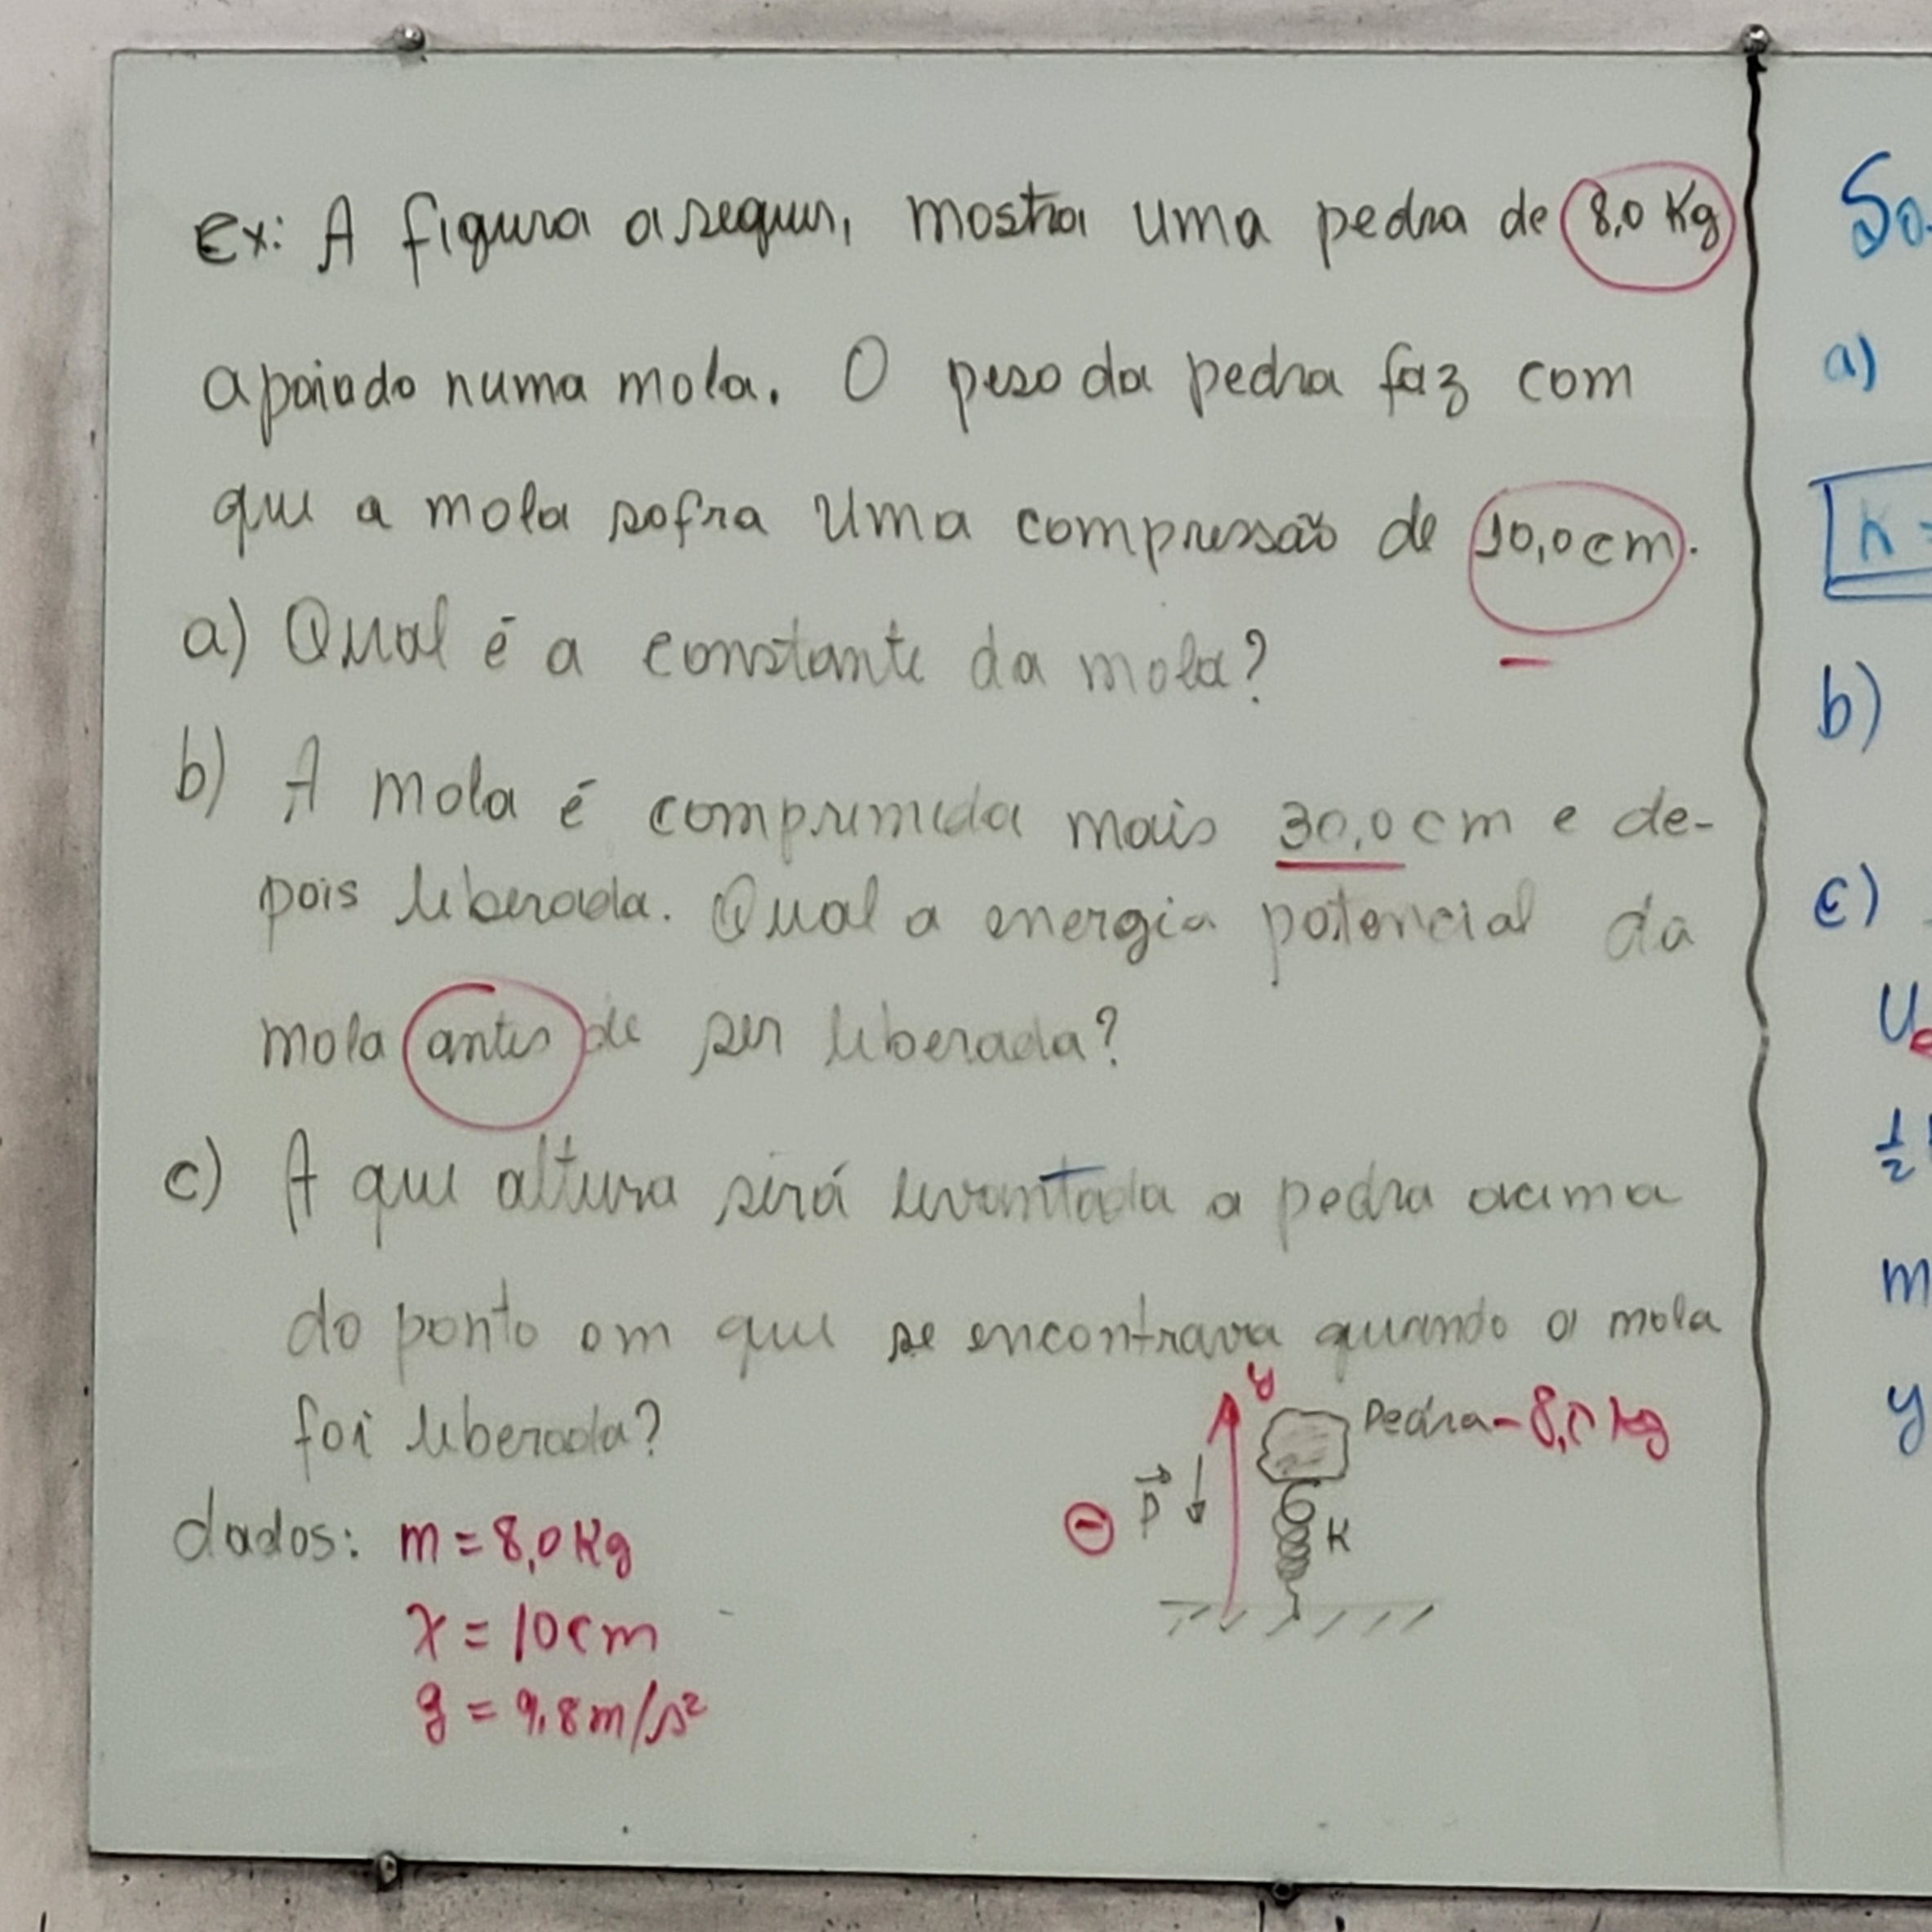 Ex: A figura a seguir, mostra uma pedra de 8,0 Kg
apoiado numa mola. O peso da pedra faz com
que a mola sofra uma compressão de 10,0cm.
a) Qual é a constante da mola?
b) A mola é comprimida mais 30,0cm e de-
pois liberada. Qual a energia potencial da
mola antes de ser liberada?
c) A que altura será levantada a pedra acima
do ponto em que se encontrava quando a mola
foi liberada?
y
Pedra - 8,0 kg
P
K
dados: m = 8,0Kg
x = 10cm
g = 9,8m/s²
So
a)
K =
b)
c)
U
1/2
m
y